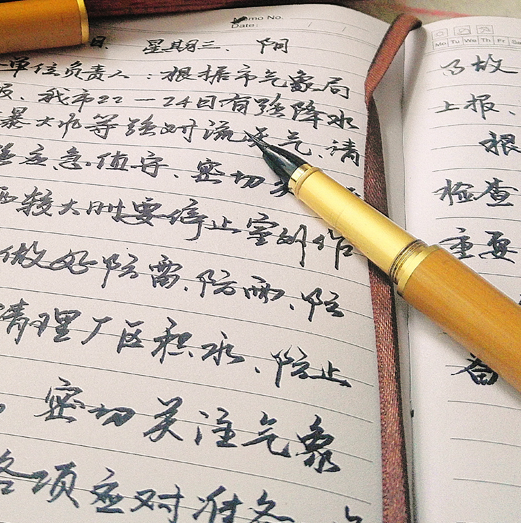 Memo No.
Date:
日. 星期三. 阴
单位负责人：根据市气象局
我市22－24日有强降水
暴大冰等强对流天气，请
应急值守、密切关
较大则要停止室外作
做好防雷、防雨、防
清理厂区积水、防止
密切关注气象
各项应对准备
Mo Tu We Th Fr
事故
上报、
根
检查
重要
备